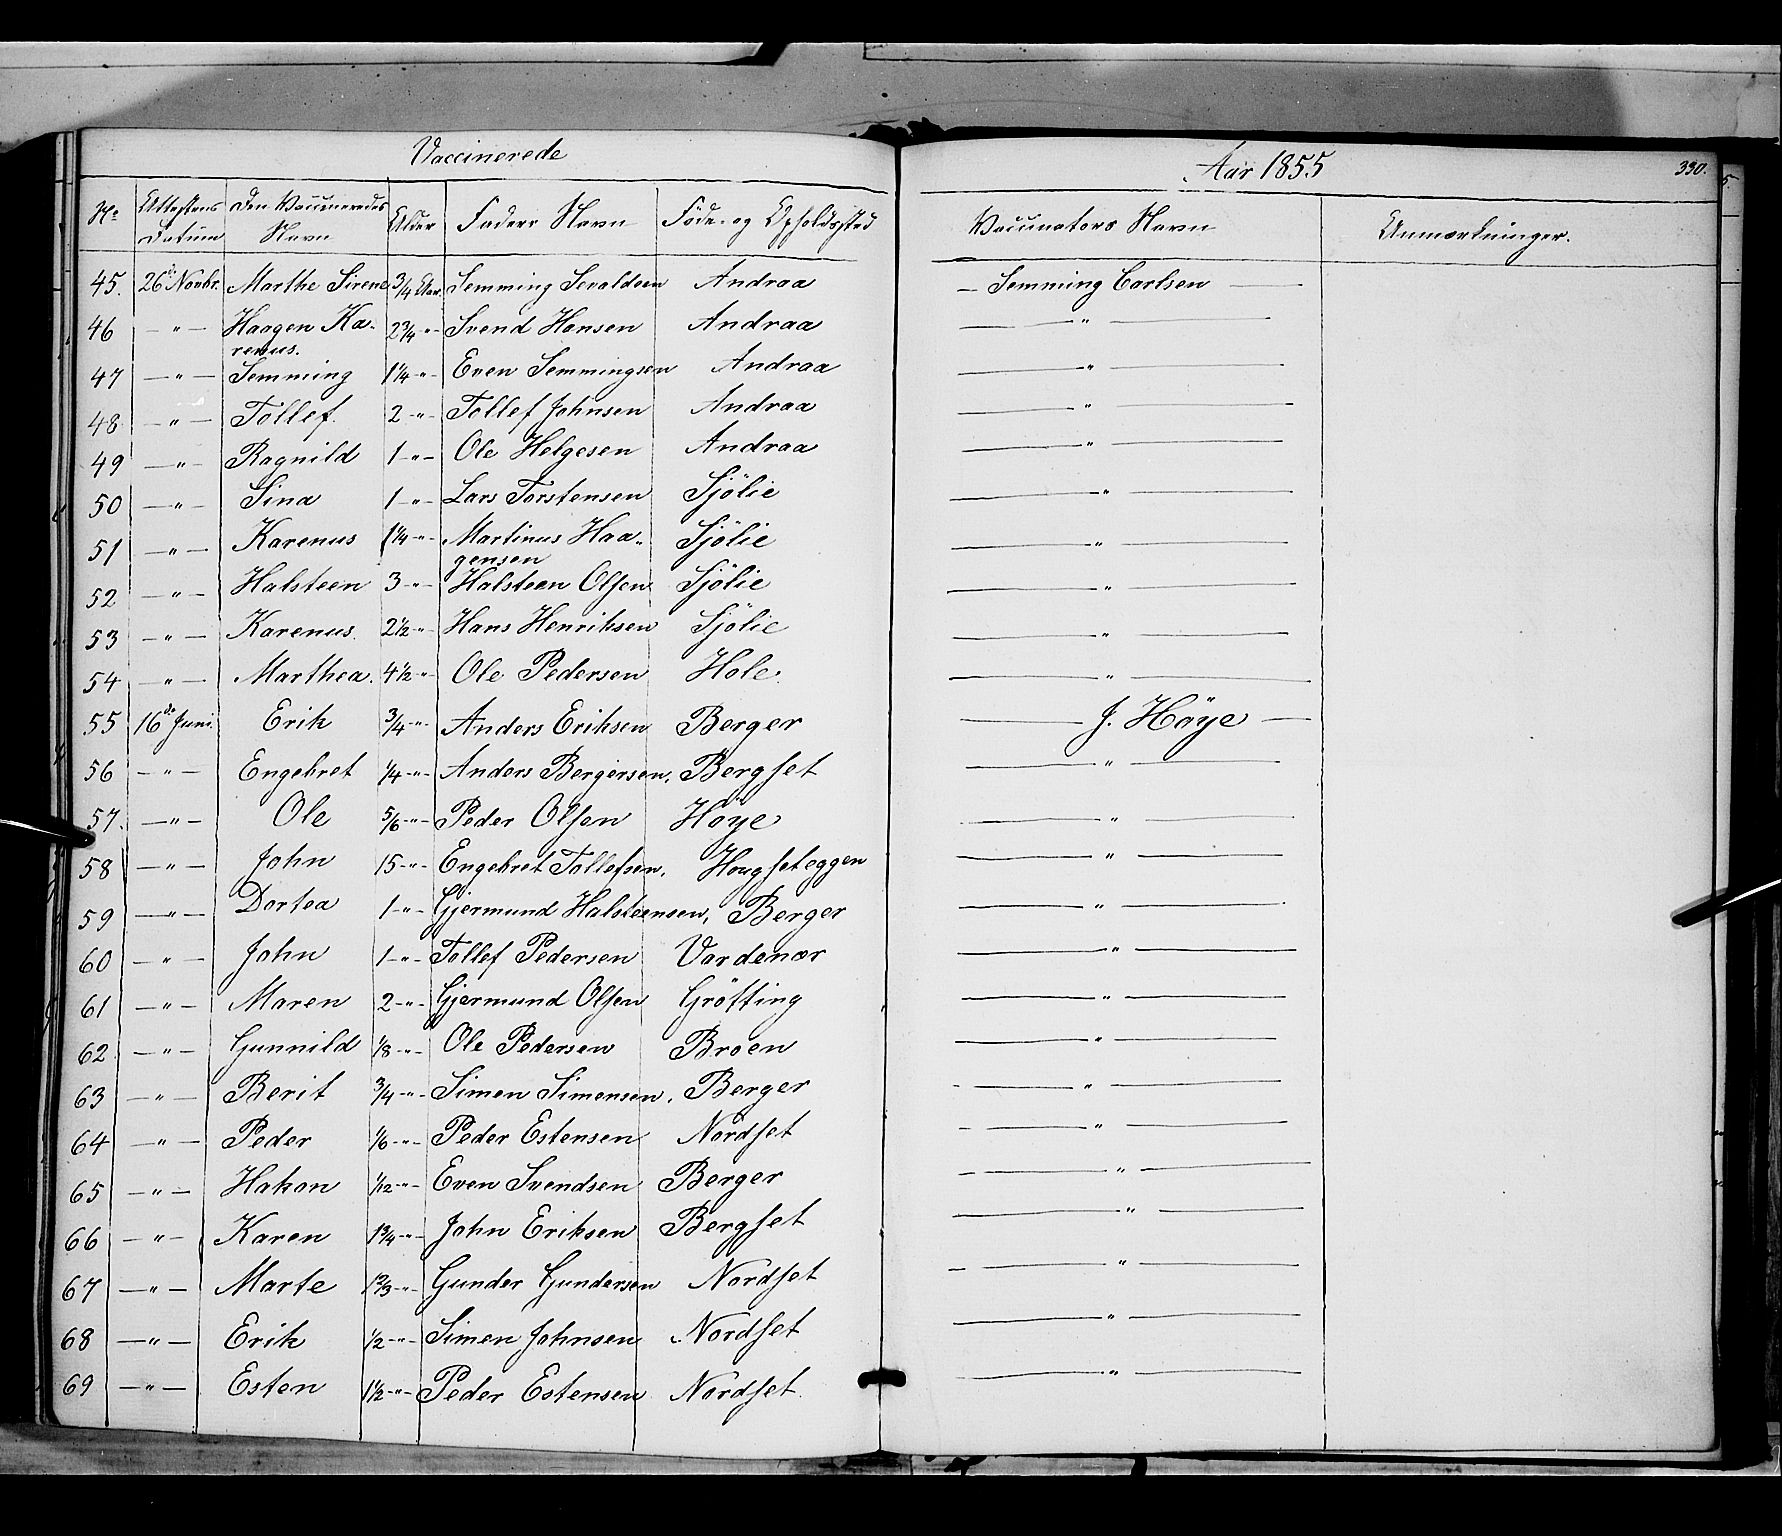 Vaccinerede
Aar 1855
330.
No
Attestens Datum
Den Vaccineredes Navn
Alder
Faders Navn
Føde- og Opholdssted
Vaccinators Navn
Anmærkninger.
45. 26de Novbr. Marthe Sirene 3/4 Aar. Semming Sevaldsen Andraa — Semming Carlsen —
46 — " — Haagen Ka- 2 3/4 -"- Svend Hansen Andraa — " —
renus.
47 — " — Semming 1 1/4 -"- Even Semmingsen Andraa — " —
48 — " — Tollef. 2 -"- Tollef Johnsen Andraa — " —
49 — " — Ragnild 1 -"- Ole Helgesen Andraa — " —
50 — " — Sina 1 -"- Lars Torstensen Sjölie — " —
51 — " — Karenus 1 1/4 -"- Martinus Haa- Sjölie — " —
gensen
52 — " — Halsteen 3 -"- Halsteen Olsen Sjölie — " —
53 — " — Karenus. 2 1/2 -"- Hans Henriksen Sjölie — " —
54 — " — Marthea. 4 1/2 -"- Ole Pedersen Hole. — " —
55 16de Juni. Erik 3/4 -"- Anders Eriksen Berger — J. Höye —
56 — " — Engebret 1/4 -"- Anders Bergersen. Bergset — " —
57. — " — Ole 5/6 -"- Peder Olsen Höye — " —
58 — " — John 15 -"- Engebret Tollefsen. Hougseteggen — " —
59 — " — Dortea 1 -"- Gjermund Halsteensen, Berger — " —
60 — " — John 1 -"- Tollef Pedersen Vardenær — " —
61 — " — Maren 2 -"- Gjermund Olsen Grötting — " —
62 — " — Gunnild 1/8 -"- Ole Pedersen Broen — " —
63 — " — Berit 3/4 -"- Simen Simensen. Berger — " —
64 — " — Peder 1/6 -"- Peder Estensen Nordset — " —
65 — " — Hakon 1/12 -"- Even Svendsen Berger — " —
66 — " — Karen 1 3/4 -"- John Eriksen Bergset — " —
67 — " — Marte 1 2/3 -"- Gunder Gundersen Nordset — " —
68 — " — Erik 1/2 -"- Simen Johnsen Nordset — " —
69 — " — Esten 1 1/2 -"- Peder Estensen Nordset. — " —